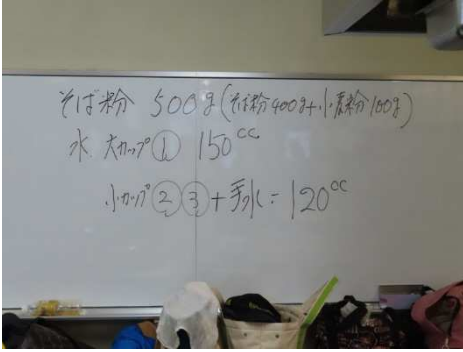 そば粉 500g(そば粉400g+小麦粉100g)
水 大カップ① 150cc
小カップ②③+手水=120cc